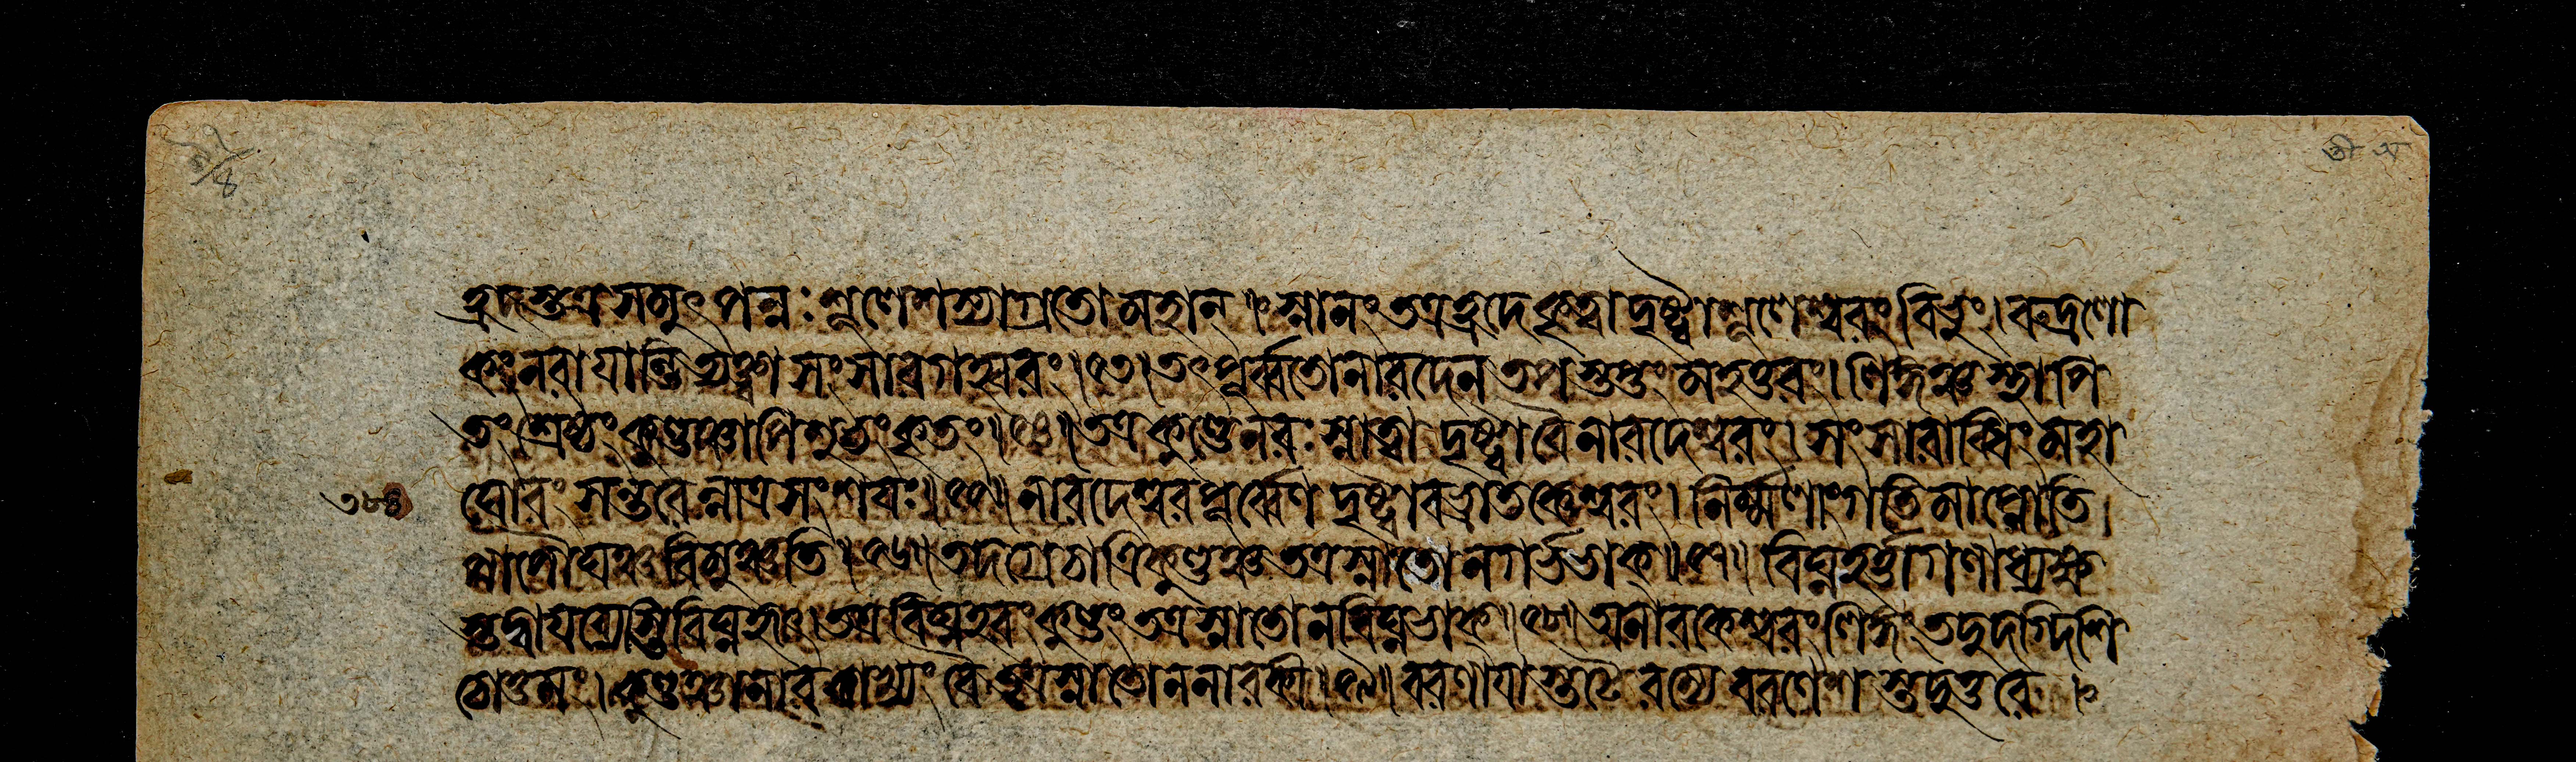 হ্রদস্তত্রসমুৎপন্নঃশূলেশস্যাগ্রতোমহান্।স্নানংতত্রহ্রদেকৃত্বাদৃষ্ট্বাশূলেশ্বরংবিভুং।রুদ্রলো
কংনরাযান্তিত্যক্ত্বাসংসারগহ্বরং।৫৩।তৎপূর্ব্বতোনারদেনতপস্তপ্তংমহত্তরং।লিঙ্গঞ্চস্থাপি
তংশ্রেষ্ঠংকুণ্ডঞ্চাপিশুভংকৃতং॥৫৪॥তত্রকুণ্ডেনরঃস্নাত্বাদৃষ্ট্বাবৈনারদেশ্বরং।সংসারাব্ধিংমহা
৩৮৪ ঘোরংসন্তরেন্নাত্রসংশয়ঃ॥৫৫॥নারদেশ্বরপূর্ব্বেণদৃষ্ট্বাবভ্রাতকেশ্বরং।নির্ম্মলাংগতিমাপ্নোতি
পাপৌঘঞ্চবিমুঞ্চতি॥৫৬॥তদগ্রেচাত্রিকুণ্ডঞ্চতত্রস্নাতোনগর্ভভাক্॥৫৭॥বিঘ্নহর্ত্তাগণাধ্যক্ষ
স্তদ্বায়ব্যেস্তিবিঘ্নহাঃ।তত্রবিঘ্নহরংকুণ্ডংতত্রস্নাতোনবিঘ্নভাক্॥৫৮॥অনারকেশ্বরংলিঙ্গংতদুদগ্দিশি
চোত্তমং।কুণ্ডঞ্চানারকাখ্যংবৈতত্রস্নাতোননারকী॥৫৯॥বরণায়াস্তটেরম্যেবরণেশস্তদুত্তরে।